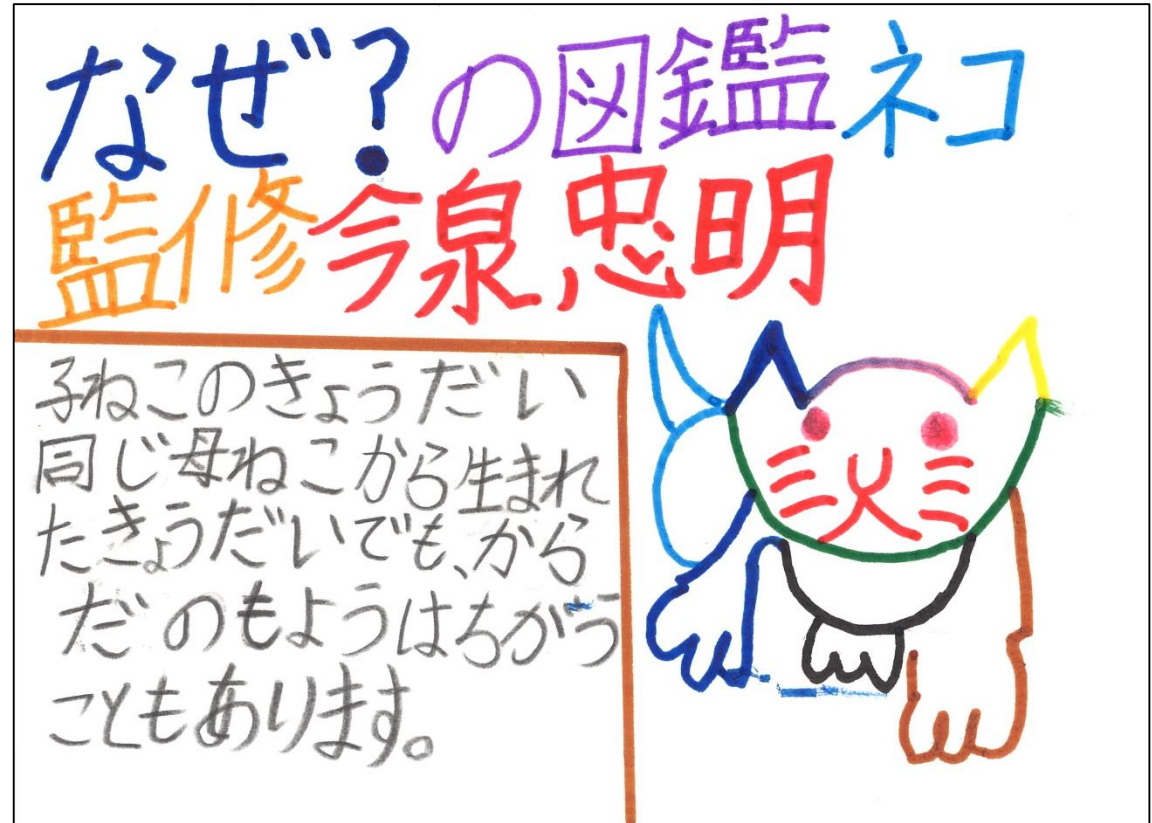 なぜ?の図鑑ネコ
監修今泉忠明
子ねこのきょうだい
同じ母ねこから生まれ
たきょうだいでも、から
だのもようはちがう
こともあります。